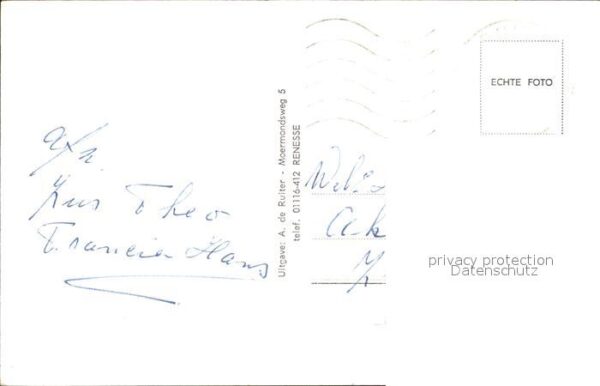 Afz.
Zus Theo
Francien Hans
Uitgave: A. de Ruiter - Moermondsweg 5
telef. 01116-412 RENESSE
ECHTE FOTO
privacy protection
Datenschutz